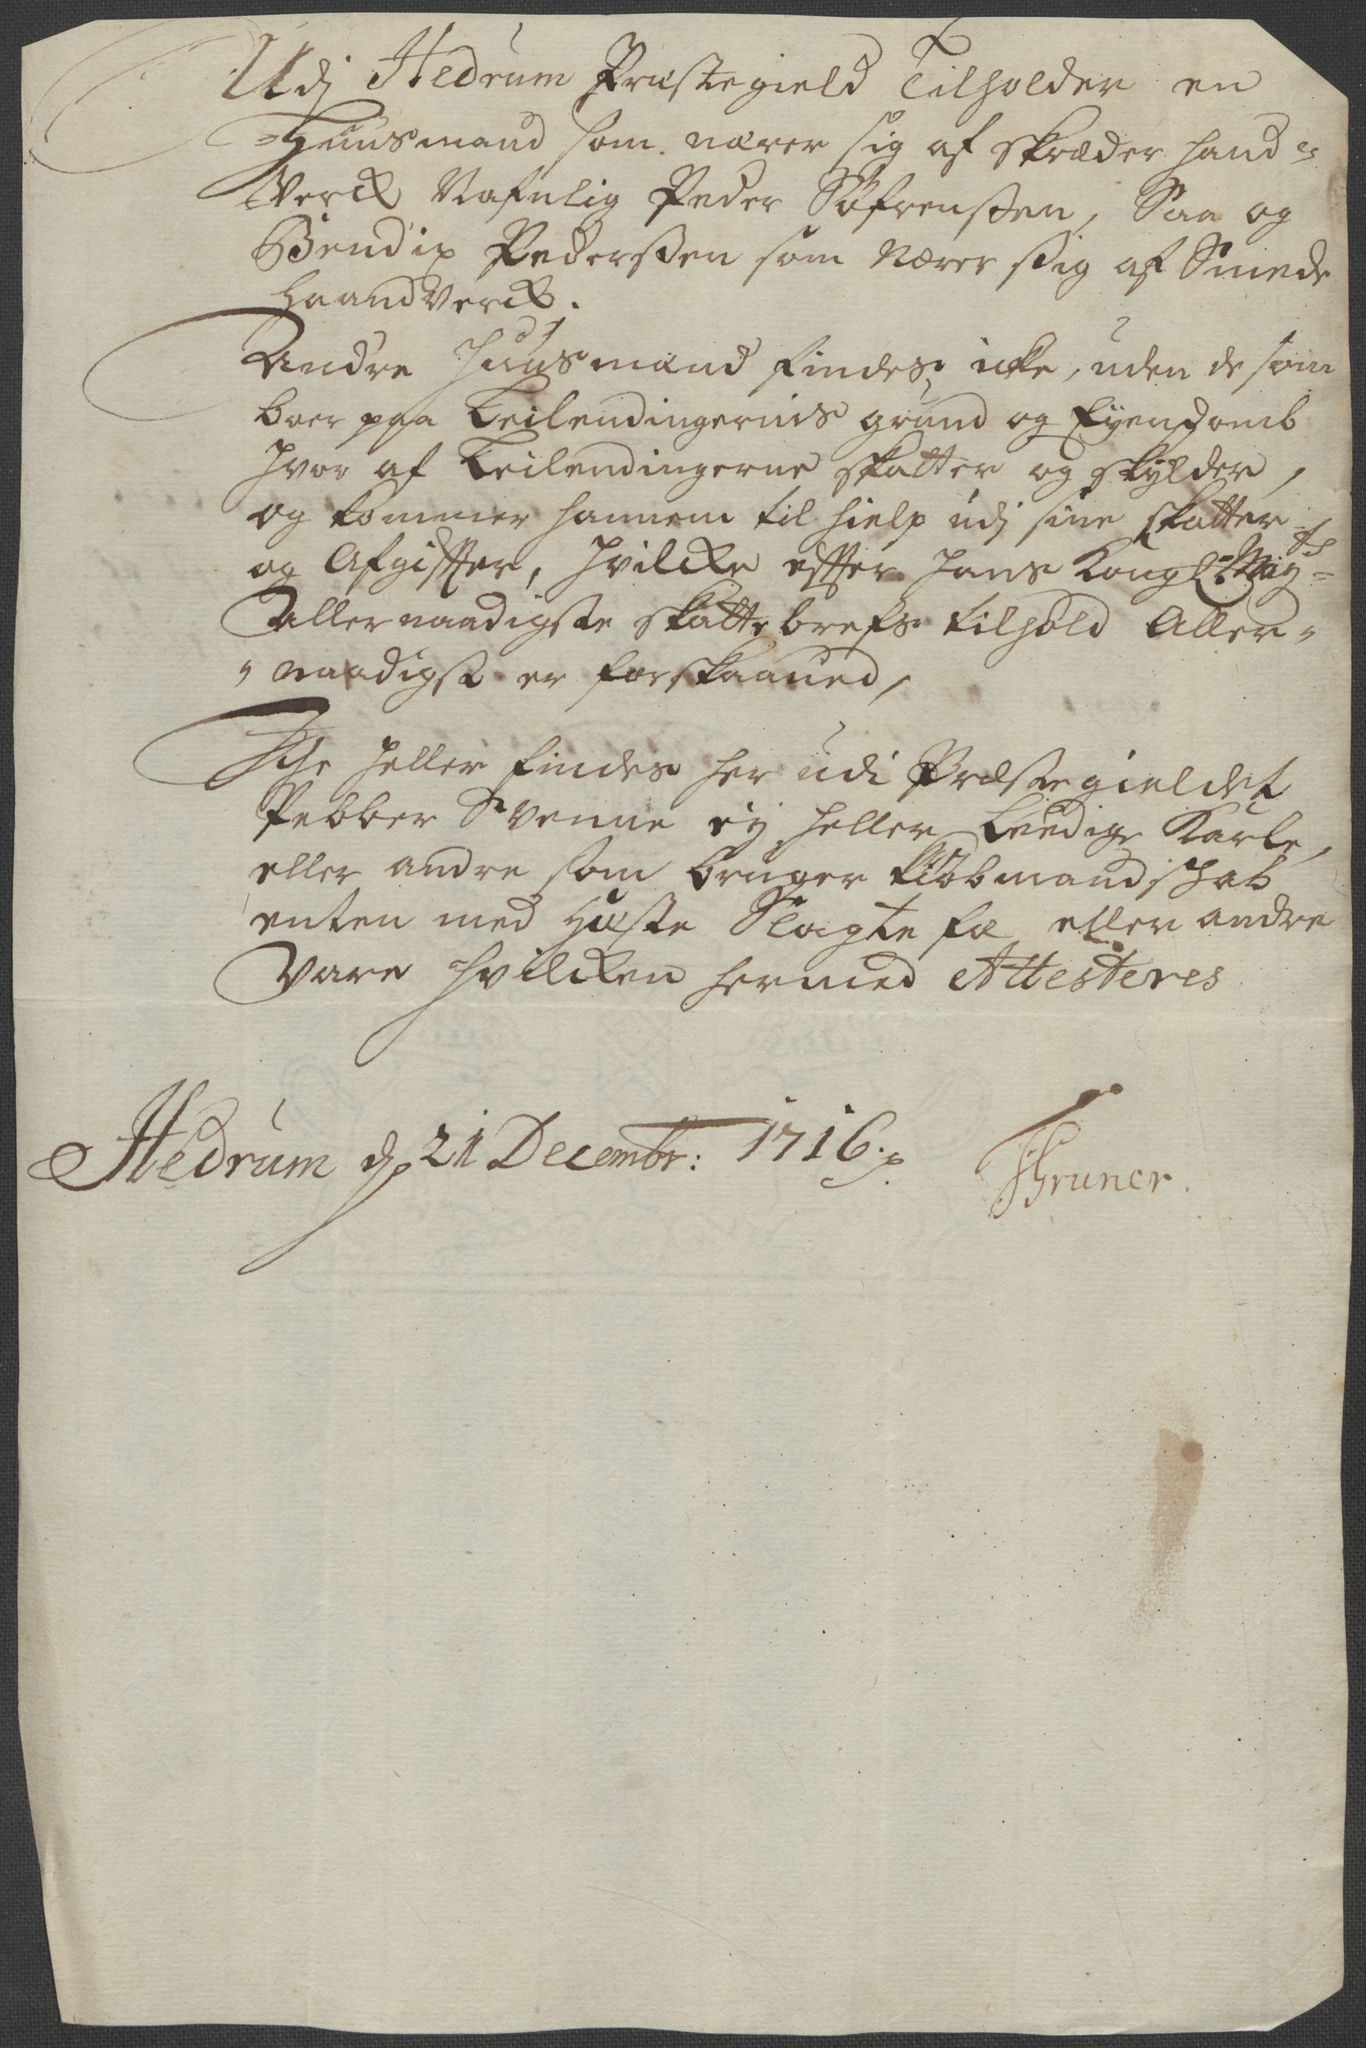 Udj Hedrum Præstegield Tilholder en
Huusmand som nærer sig af skræder hand
Verck Nafnlig Peder Söfrenßen, Saa og
Bendix Pederßen som Nærer ßig af Smede
haandverck.
Andre Huusmænd findes icke, uden de som
boer paa Leilendingernis grund og Eyendomb
hvor af Leilendingerne skatter og skylder,
og kommer hannem til hielp udj sine skatter
og Afgiffter, hvilcke effter Hans Kongl: May:ts
Allernaadigste skattebrefs tilhold Aller-
naadigst er forskaaned,
Iche heller findes her udi Præstegieldet
Pebber Svenne ey heller Leedige Karle,
eller andre som bruger kiöbmandschab
enten med Heste Slagte fæ eller andre
Vare hvilcken hermed Attesteres
Hedrum d. 21 Decembr: 1716.
Gruner.